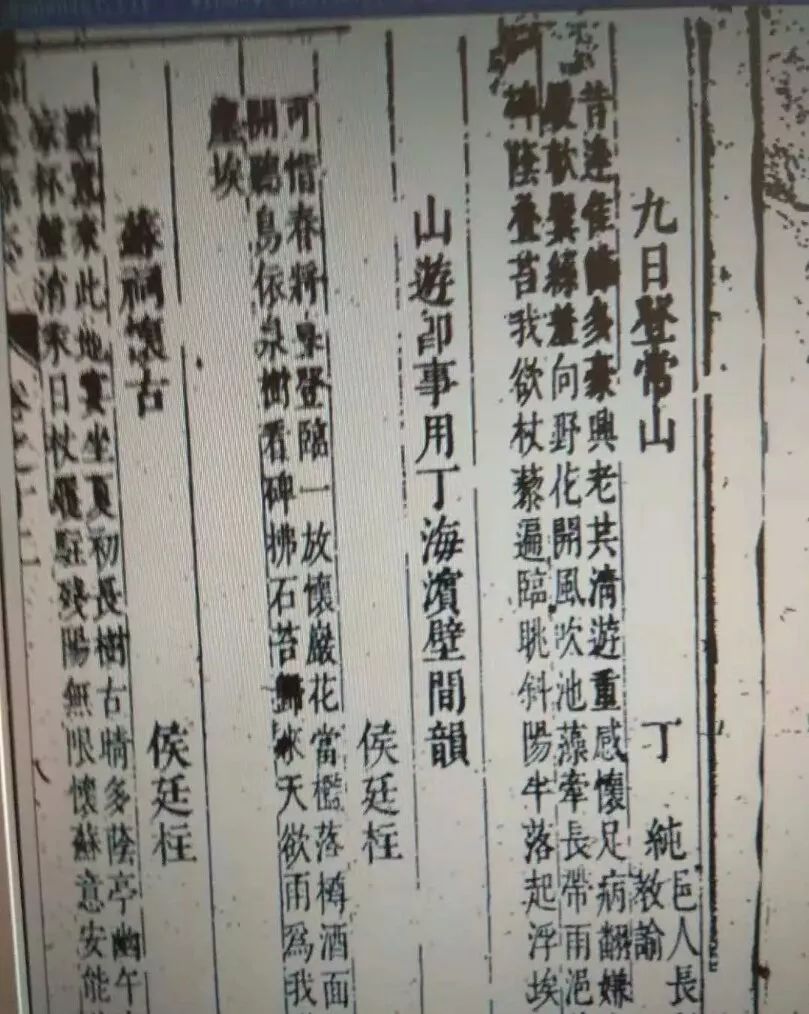 九日登常山
丁純邑人長
教諭
昔逢佳節多豪興老共清遊重感懷足病翻嫌
嚴欹鬢絲羞向野花開風吹池藻牽長帶雨浥
碑陰疊苔我欲杖藜遍臨眺斜陽半落起浮埃
山遊即事用丁海濱壁間韻
侯廷柱
可惜春將暮登臨一放懷巖花當檻落樽酒面
開聽鳥依泉樹看碑拂石苔歸來天欲雨為我
塵埃
蘇祠懷古
侯廷柱
來此地賓坐夏初長樹古晴多蔭亭幽午
涼杯盤消永日杖履駐殘陽無限懷蘇意安能
卷之十二